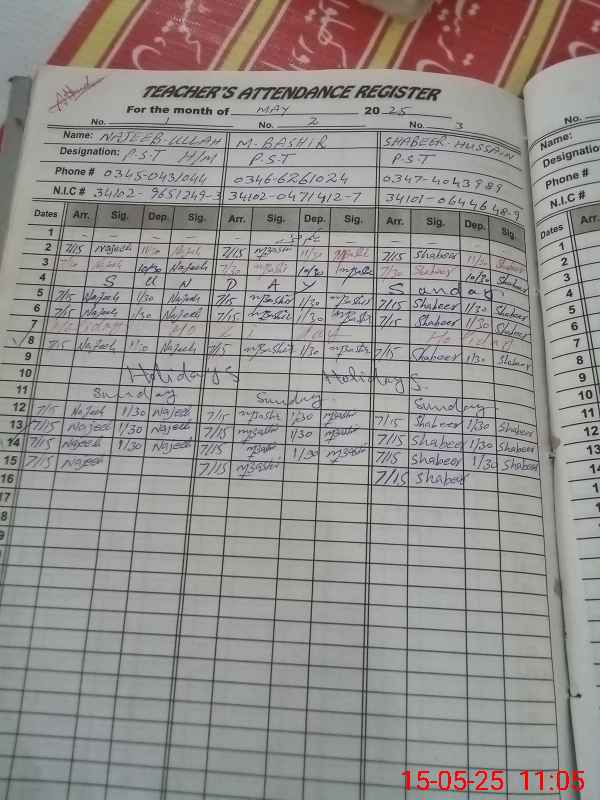 Attnd
TEACHER'S ATTENDANCE REGISTER
For the month of MAY 2025
No. 1 No. 2 No. 3
Name: NAJEEB-ULLAH M-BASHIR SHABEER-HUSSAIN
Designation: P.S.T H/M P.S.T P.S.T
Phone # 0345-043/044 0346-6261024 0347-4043989
N.I.C # 34102-9651249-3 34102-0471412-7 34101-0644648-9
Dates Arr. Sig. Dep. Sig. Arr. Sig. Dep. Sig. Arr. Sig. Dep. Sig.
1 – – – – – – – – –
2 7/15 Najeeb 11/30 Najeeb 7/15 MBashir 11/30 MBashir 7/15 Shabeer 11/30 Shabeer
3 7/30 Najeeb 10/30 Najeeb 7/30 MBashir 10/30 MBashir 7/30 Shabeer 10/30 Shabeer
4 SUNDAY Sunday
5 7/15 Najeeb 1/30 Najeeb 7/15 MBashir 1/30 MBashir 7/15 Shabeer 1/30 Shabeer
6 7/15 Najeeb 1/30 Najeeb 7/15 MBashir 1/30 MBashir 7/15 Shabeer 1/30 Shabeer
7 Holiday Holiday
8 7/15 Najeeb 1/30 Najeeb 7/15 MBashir 1/30 MBashir 7/15 Shabeer 1/30 Shabeer
9
10 Holidays Holidays.
11 Sunday Sunday. Sunday.
12 7/15 Najeeb 1/30 Najeeb 7/15 MBashir 1/30 MBashir 7/15 Shabeer 1/30 Shabeer
13 7/15 Najeeb 1/30 Najeeb 7/15 MBashir 1/30 MBashir 7/15 Shabeer 1/30 Shabeer
14 7/15 Najeeb 1/30 Najeeb 7/15 MBashir 1/30 MBashir 7/15 Shabeer 1/30 Shabeer
15 7/15 Najeeb 7/15 MBashir 7/15 Shabeer
16
17
18
19
20
21
22
23
24
25
26
27
28
29
No.
Name:
Designation
Phone #
N.I.C #
Dates Arr.
1
2
3
4
5
6
7
8
9
10
11
12
13
15-05-25 11:05